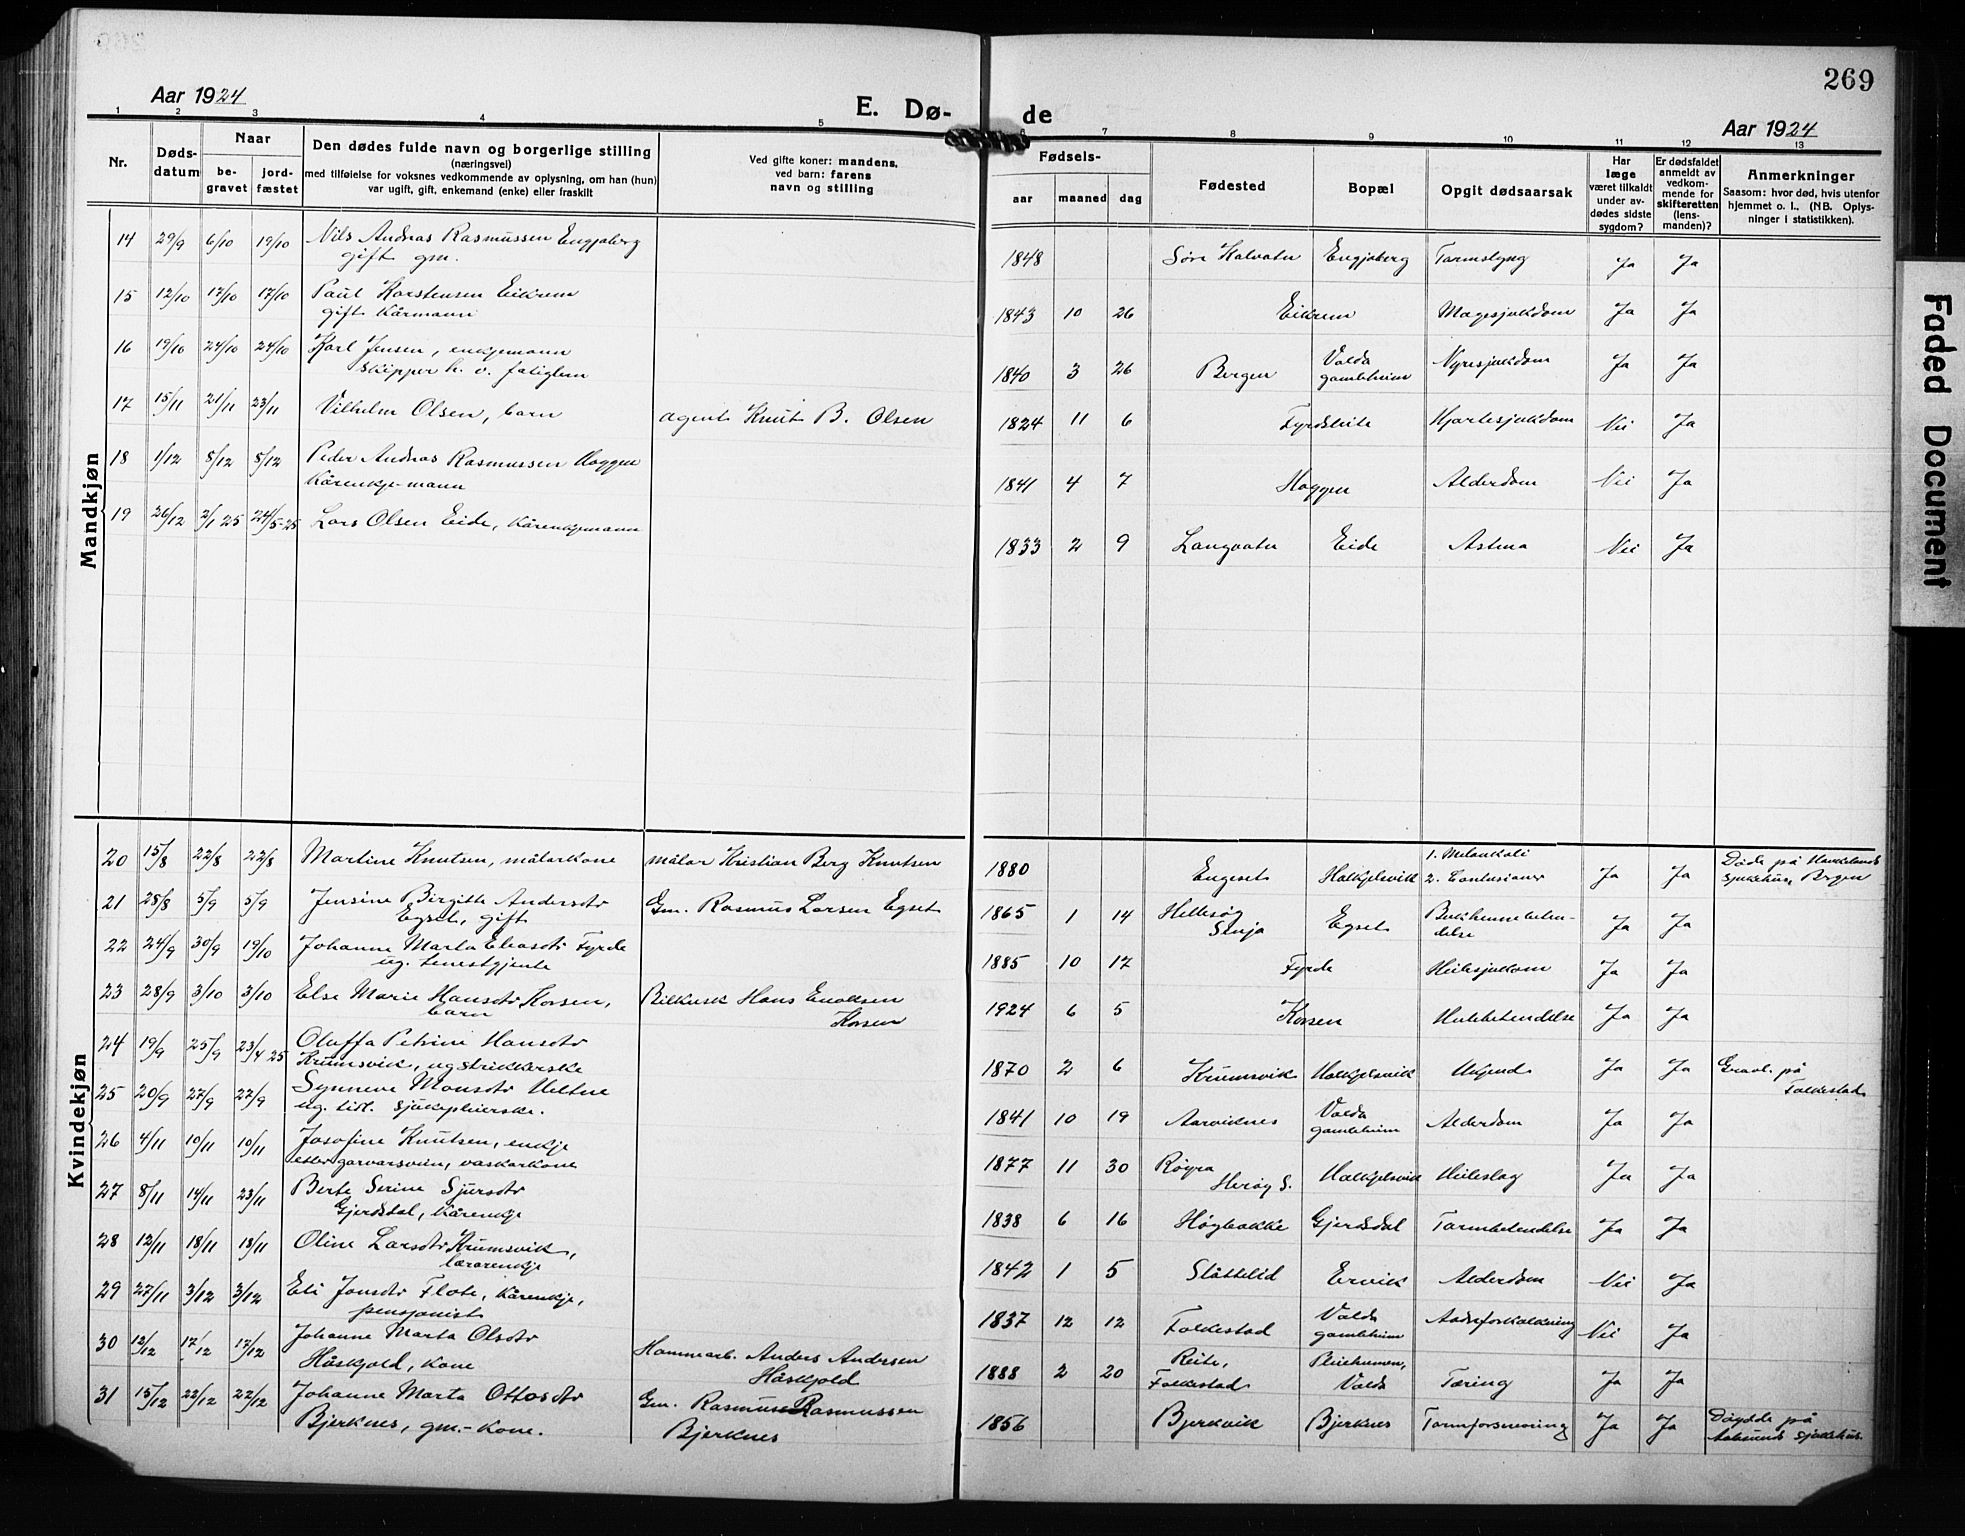 269
Aar 1924
E. Dø-
de
Aar 1924
1 2 3 4 5 6 7 8 9 10 11 12 13
Nr.
Døds-
datum
Naar
be-
gravet
jord-
fæstet
Den dødes fulde navn og borgerlige stilling
(næringsvei)
med tilføielse for voksnes vedkommende av oplysning, om han (hun)
var ugift, gift, enkemand (enke) eller fraskilt
Ved gifte koner: mandens,
ved barn: farens
navn og stilling
Fødsels-
aar maaned dag
Fødested
Bopæl
Opgit dødsaarsak
Har
læge
været tilkaldt
under av-
dødes sidste
sygdom?
Er dødsfaldet
anmeldt av
vedkom-
mende for
skifteretten
(lens-
manden)?
Anmerkninger
Saasom: hvor død, hvis utenfor
hjemmet o. l., (NB. Oplys-
ninger i statistikken).
Mandkjøn
14 29/9 6/10 19/10 Nils Andreas Rasmussen Engjaberg 1848 Søre Halvater Engjaberg Tarmslyng Ja Ja
gift gm.
15 12/10 17/10 17/10 Paul Karstensen Eikrem 1843 10 26 Eikrem Magesjukdom Ja Ja
gift Kårmann
16 19/10 24/10 24/10 Karl Jensen, enkjemann 1840 3 26 Bergen Volda Nyresjukdom Ja Ja
skipper h. v. fatiglem gamleheim
17 15/11 21/11 23/11 Vilhelm Olsen, barn agent Knut B. Olsen 1824 11 6 Fyrdsleite Hjartesjukdom Nei Ja
18 1/12 8/12 8/12 Peder Andreas Rasmussen Haggen 1841 4 7 Haggen Alderdom Nei Ja
Kårenkje-mann
19 26/12 2/1 25 24/5-25 Lars Olsen Eide, Kårenkjemann 1833 2 9 Langvatn Eide Astma Nei Ja
Kvindekjøn
20 15/8 22/8 22/8 Martine Knutsen, målarkone målar Kristian Berg Knutsen 1880 Engeset Halkjelsvik 1. Melankoli Ja Ja Døde på Haukelands
2. Contusioner sjukehus, Bergen
21 28/8 5/9 5/9 Jensine Birgitte Andersdtr Gm. Rasmus Larsen Egset 1865 1 14 Hellesøy Egset Bukhinnebeten- Ja Ja
Egset, gift delse
22 24/9 30/9 19/10 Johanne Marta Eliasdtr Fyrde 1885 10 17 Fyrde Heilesjukdom Ja Ja
ug. tenestgjente
23 28/9 3/10 3/10 Else Marie Hansdtr Korsen, Bilkusk Hans Enoksen 1924 6 5 Korsen Ja Ja
barn Korsen
24 19/9 25/9 23/4 25 Oluffa Petrine Hansdtr 1870 2 6 Krumsvik Halkjelsvik Ukjend Ja Ja Gravl. på
Krumsvik, ug strikkerske Folkestad
25 20/9 27/9 27/9 Synneve Monsdtr Heltne 1841 10 19 Aarviknes Volda Alderdom Ja Ja
ug. tidl. sjukepleierske. gamleheim
26 4/11 10/11 10/11 Josofine Knutsen, enkje 1877 11 30 Røyra Halkjelsvik Heileslag Ja Ja
etter garvarsvein, vaskarkone Herøy S.
27 8/11 14/11 23/11 Berte Serine Sjursdtr 1838 6 16 Høgbakke Gjerdsdal Tarmbetendelse Ja Ja
Gjerdsdal, Kårenkje
28 12/11 18/11 18/11 Oline Larsdtr Krumsvik, 1842 1 5 Slåttelid Ervik Alderdom Nei Ja
lærarenkje
29 27/11 3/12 3/12 Eli Jonsdtr Flote, Kårenkje, 1837 12 12 Folkestad Volda Aadreforkalkning Nei Ja
pensjonist gamleheim
30 12/12 17/12 17/12 Johanne Marta Olsdtr Hammarb. Anders Andersen 1888 2 20 Reite, Pleiehemen, Tæring Ja Ja
Håskjold, kone Håskjold Folkestad Volda
31 15/12 22/12 22/12 Johanne Marta Ottosdtr Gm. Rasmus Rasmussen 1856 Bjerkvik Bjerknes Tarmforsnevring Ja Ja Døydde på
Bjerknes, gm.-kone. Bjerknes Aalesunds sjukehus.
Faded Document